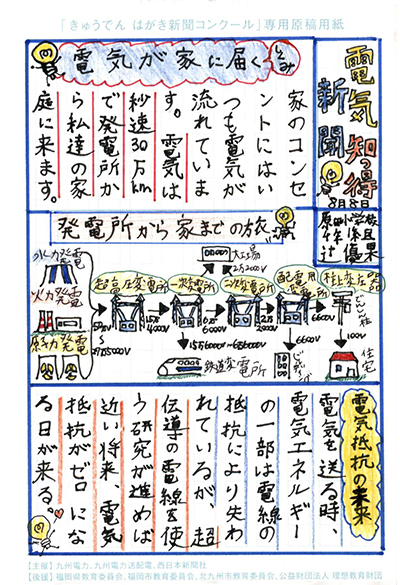 「きゅうでん はがき新聞コンクール」専用原稿用紙
電気知っ得
新聞
8月8日
電気が家に届くしくみ
家のコンセ
ントにはい
つも電気が
流れていま
す。電気は
秒速30万km
で発電所か
ら私達の家
庭に来ます。
発電所から家までの旅
大工場
水力発電
火力発電
原子力発電
超高圧変電所
一次変電所
二次変電所
配電用変電所
柱上変圧器
6600V
6600V
100V
鉄道変電所
住宅
電気抵抗の未来
電気を送る時、
電気エネルギー
の一部は電線の
抵抗により失わ
れているが、超
伝導の電線を使
う研究が進めば
近い将来、電気
抵抗がゼロにな
る日が来る。
【主催】九州電力、九州電力送配電、西日本新聞社
【後援】福岡県教育委員会、福岡市教育委員会、北九州市教育委員会、公益財団法人 理想教育財団